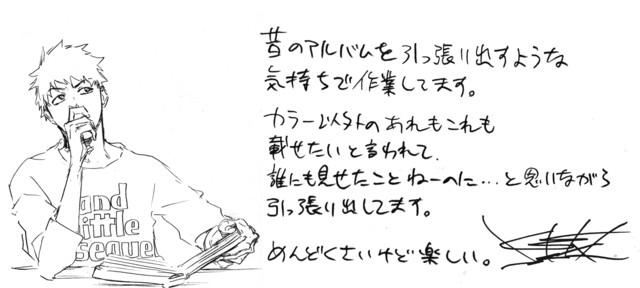 昔のアルバムを引っ張り出すような
気持ちで作業してます。
カラー以外のあれもこれも
載せたいと言われて、
誰にも見せたことねーのに…と思いながら
引っ張り出してます。
めんどくさいけど楽しい。
and
little
sequel